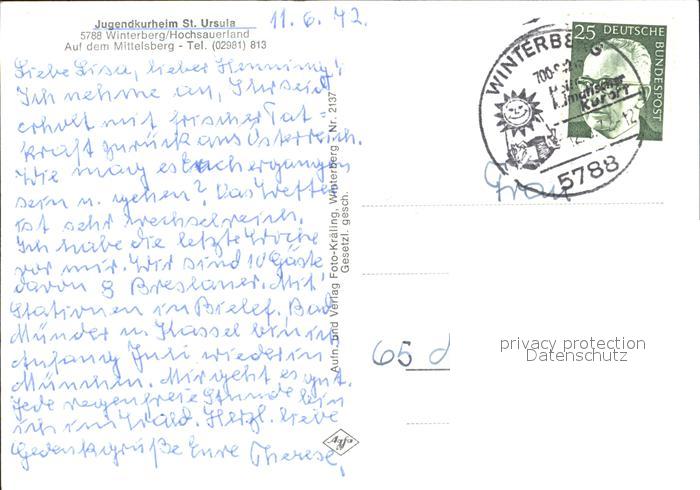 Jugendkurheim St. Ursula
5788 Winterberg/Hochsauerland
Auf dem Mittelsberg - Tel. (02981) 813
11.6.72.
Liebe Lisa, lieber Henning!
Ich nehme an, Ihr seid
erholt mit frischer Tat=
kraft zurück aus Österreich.
Wie mag es Euch ergangen
sein u. gehen? Das Wetter
ist sehr wechselreich.
Ich habe die letzte Woche
vor mir. Wir sind 10 Gäste,
davon 8 Breslauer. Mit
Stationen in Bielef. Bad
Münder u. Kassel bin in
Anfang Juli wieder in
München. Mir geht es gut.
Jede regenfreie Stunde bin
ich im Wald. Herzl. liebe
Gedenkgrüße Eure Therese.
Aufn. und Verlag Foto-Kräling, Winterberg - Nr. 2137
Gesetzl. gesch.
WINTERBERG
700-
klimatischer
Kurort
5788
25 DEUTSCHE
BUNDESPOST
Frau
65
privacy protection
Datenschutz